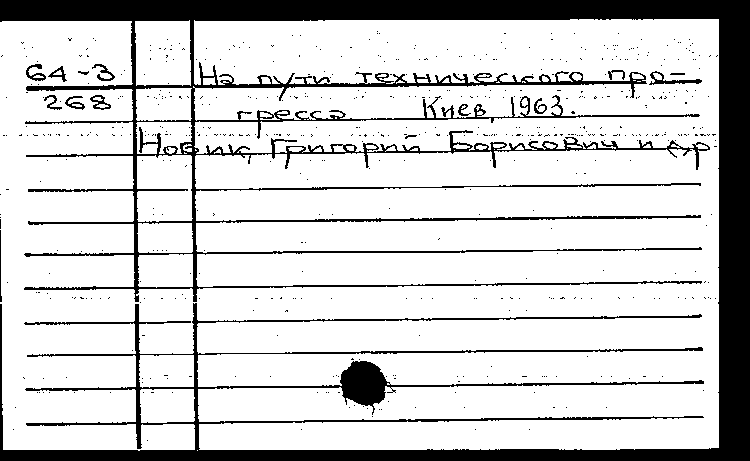 64-3 На пути технического про-
268 гресса. Киев, 1963.
Новик, Григорий Борисович и др